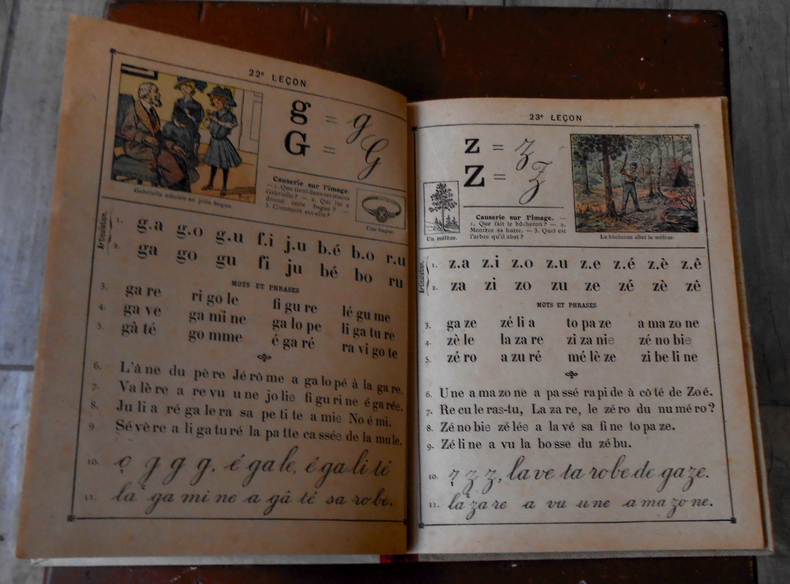 22e LEÇON
g = g
G = G
Gabrielle admire sa jolie bague.
Causerie sur l'image.
— 1. Que tient dans ses mains
Gabrielle ? — 2. Qui lui a
donné cette bague ? —
3. Comment est-elle ?
Une bague.
Articulation.
1. g.a g.o g.u f.i j.u b.é b.o r.u
2. ga go gu fi ju bé bo ru
MOTS ET PHRASES
3. ga re ri go le fi gu re lé gu me
4. ga ve ga mi ne ga lo pe li ga tu re
5. gâ té go mme é ga ré ra vi go te
6. L'â ne du pè re Jé rô me a ga lo pé à la ga re.
7. Va lè re a re vu u ne jo lie fi gu ri ne é ga rée.
8. Ju li a ré ga le ra sa pe ti te a mie No é mi.
9. Sé vè re a li ga tu ré la pa tte ca ssée de la mu le.
10. g g g, é ga le, é ga li té
11. la ga mi ne a gâ té sa ro be.
23e LEÇON
z = z
Z = Z
Un mélèze.
Causerie sur l'image. —
1. Que fait le bûcheron ? — 2.
Montrez sa hutte. — 3. Quel est
l'arbre qu'il abat ?
Le bûcheron abat le mélèze.
Articulation.
1. z.a z.i z.o z.u z.e z.é z.è z.ê
2. za zi zo zu ze zé zè zê
MOTS ET PHRASES
3. ga ze zé li a to pa ze a ma zo ne
4. zè le la za re zi za nie zé no bie
5. zé ro a zu ré mé lè ze zi be li ne
6. U ne a ma zo ne a pa ssé ra pi de à cô té de Zo é.
7. Re cu le ras-tu, La za re, le zé ro du nu mé ro ?
8. Zé no bie zé lée a la vé sa fi ne to pa ze.
9. Zé li ne a vu la bo sse du zé bu.
10. z z z, la ve ta ro be de ga ze.
11. la za re a vu u ne a ma zo ne.